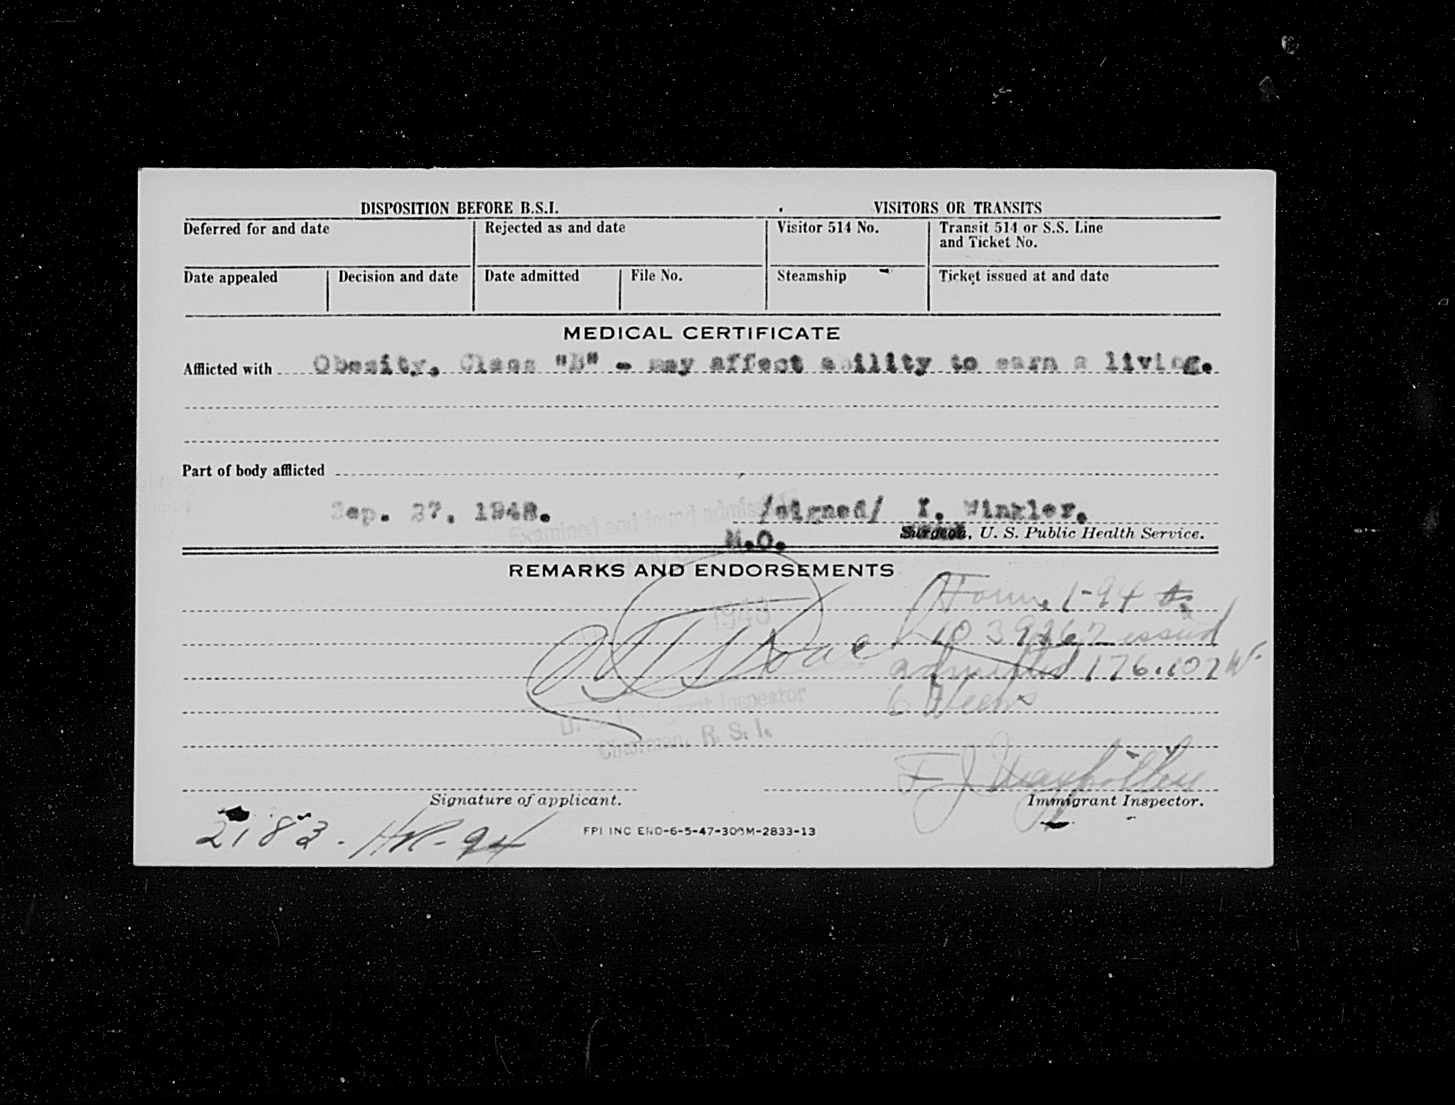 DISPOSITION BEFORE B.S.I.
VISITORS OR TRANSITS
Deferred for and date
Rejected as and date
Visitor 514 No.
Transit 514 or S.S. Line
and Ticket No.
Date appealed
Decision and date
Date admitted
File No.
Steamship
Ticket issued at and date
MEDICAL CERTIFICATE
Afflicted with Obesity. Class "B" - may affect ability to earn a living.
Part of body afflicted
Sep. 27, 1948. /signed/ I. Winkler.
M.O. Surgeon, U. S. Public Health Service.
REMARKS AND ENDORSEMENTS
Form 1-94
issued
1948
admitted 176.107
6
Inspector
Chairman, B. S. I.
F J
Signature of applicant.
Immigrant Inspector.
FPI INC ENO-6-5-47-300M-2833-13
2183. - 94